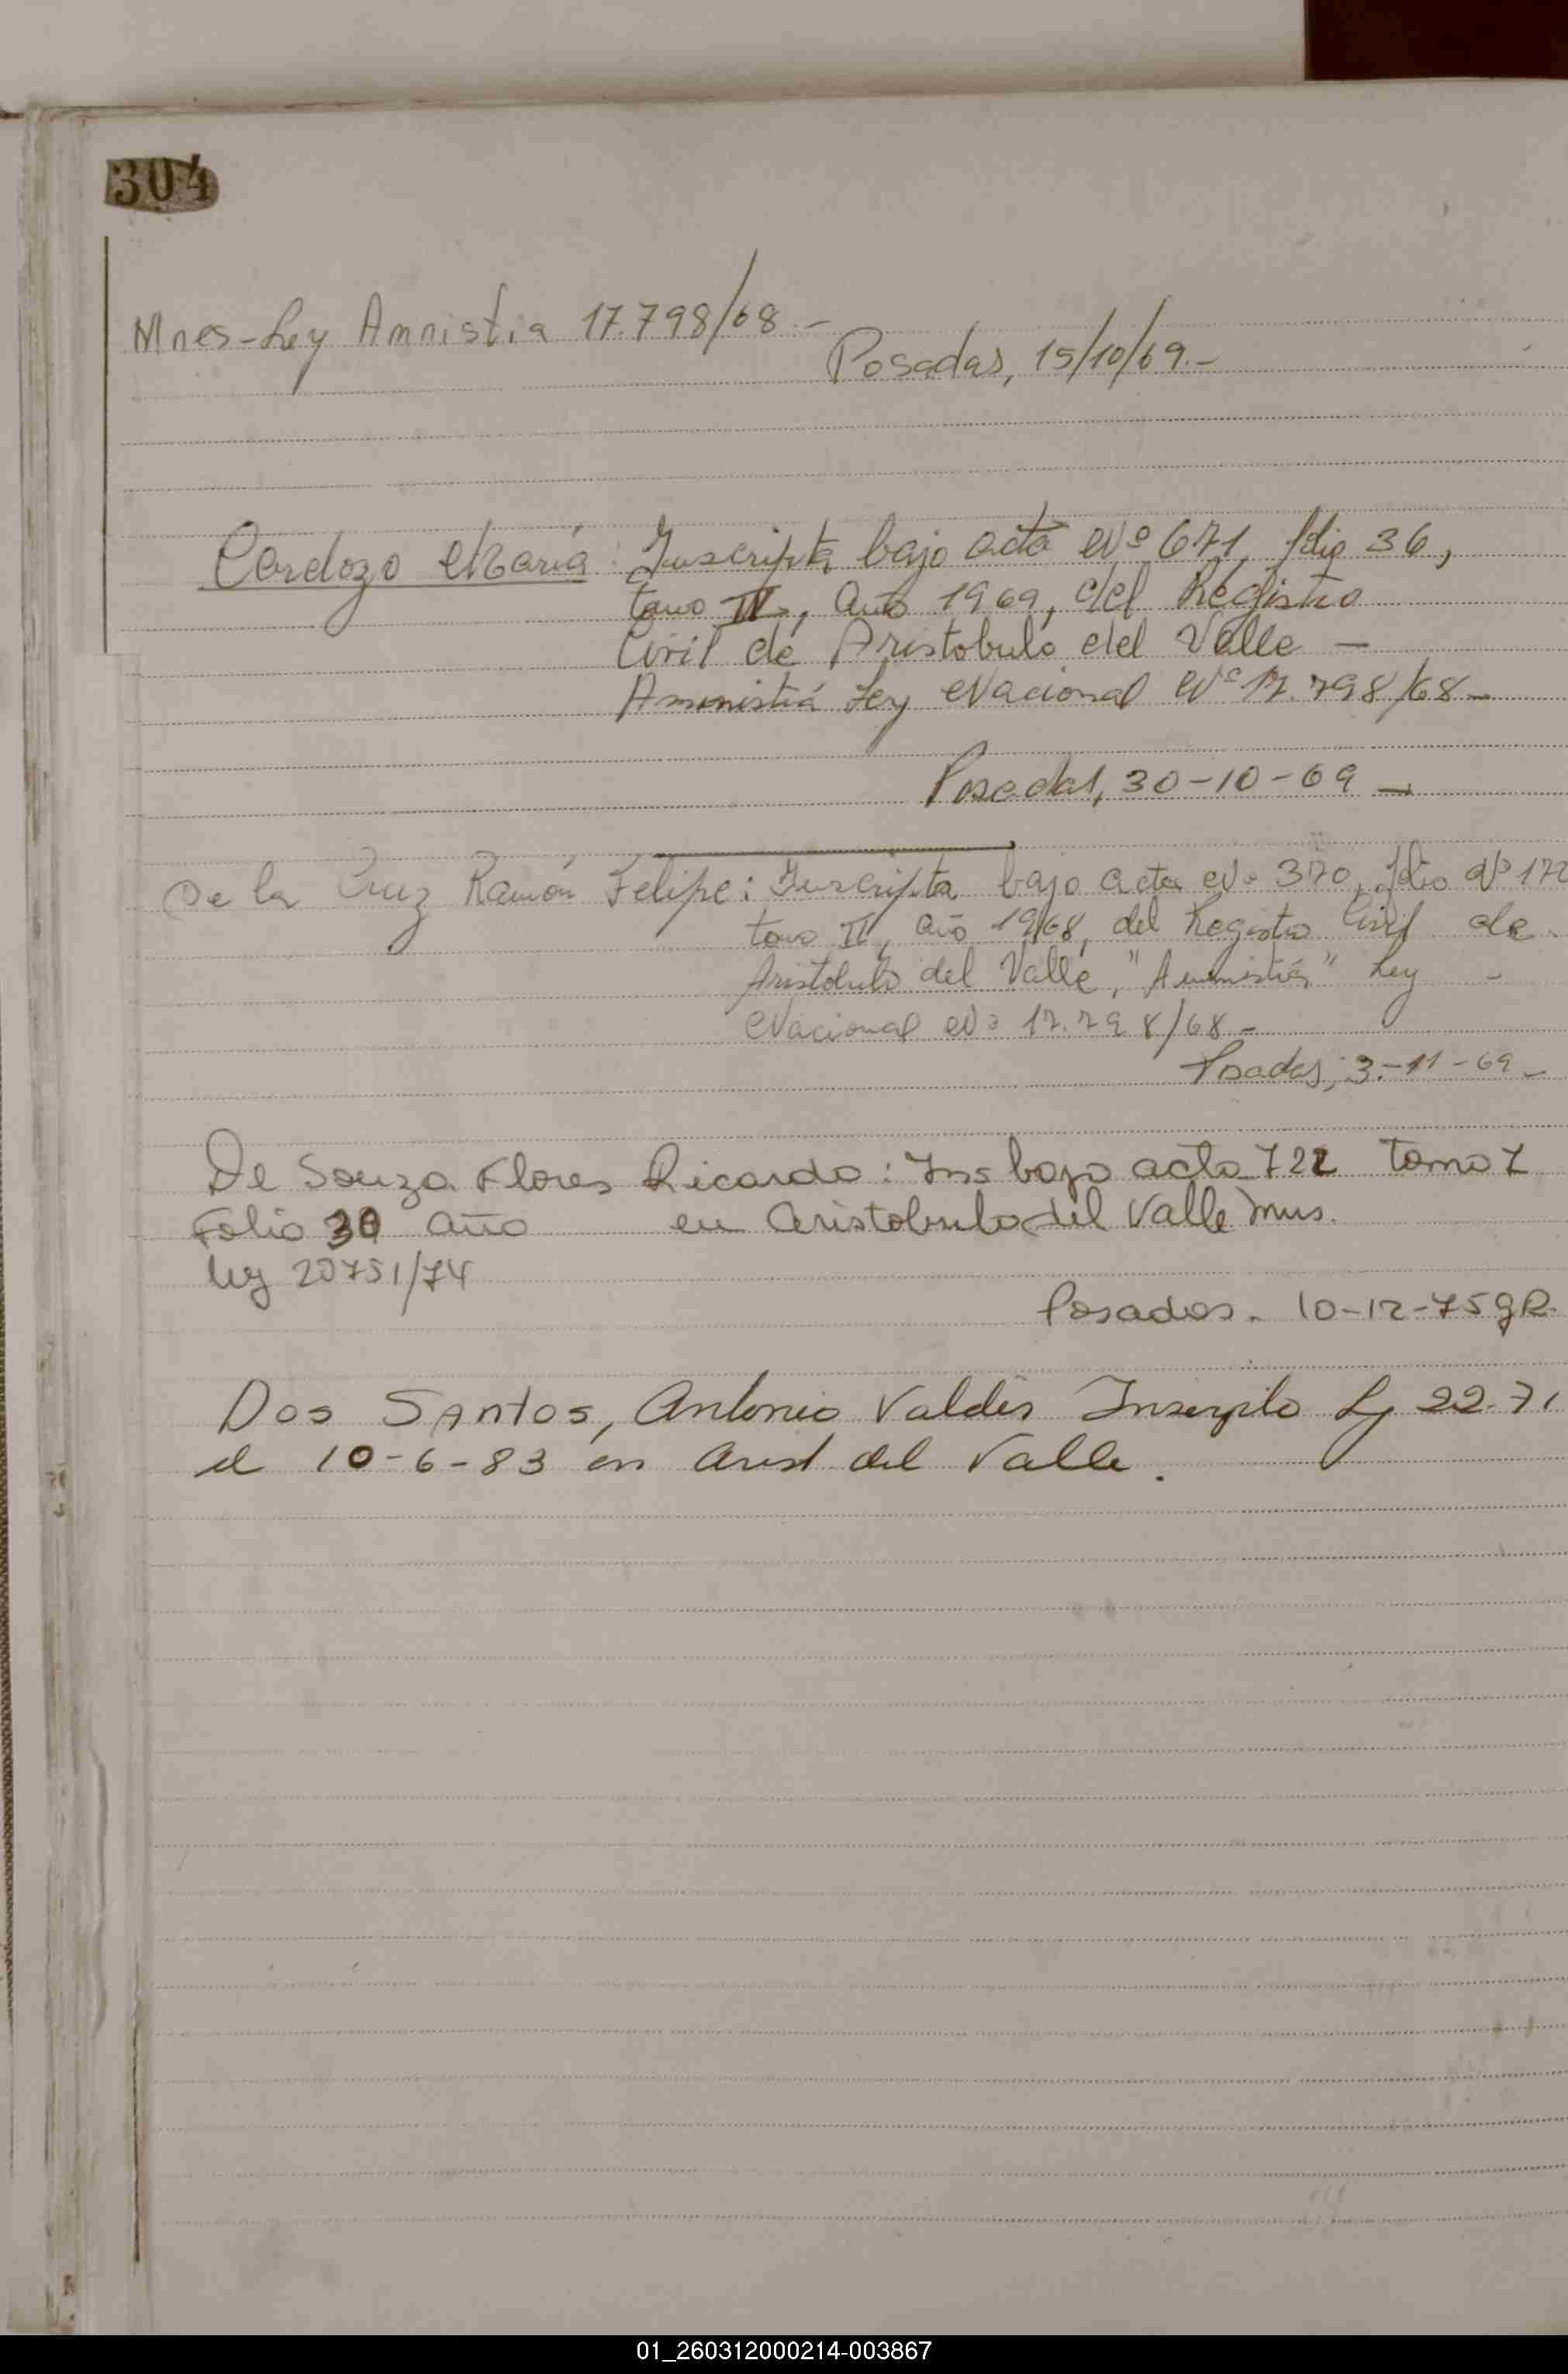 304
Mnes-Ley Amnistia 17.798/68.-
Posadas, 15/10/69.-
Cardozo María: Inscripta bajo acta Nº 671, folio 36,
tomo IV, año 1969, del Registro
Civil de Aristobulo del Valle —
Amnistiá Ley Nacional Nº 17.798/68-
Posadas, 30-10-69 —
De la Cruz Ramón Felipe: Inscripta bajo acta Nº 370, folio Nº 172
tomo II, año 1968, del Registro Civil de
Aristobulo del Valle, "Amnistiá" Ley -
Nacional Nº 17.798/68-
Posadas, 3-11-69-
De Souza Flores Ricardo: Ins bajo acta 722 tomo
Folio año en Aristobulo del Valle Mns.
ley 20751/74
Posadas. 10-12-75 gR.
Dos Santos, Antonio Valdir Inscripto Ly 22.71
el 10-6-83 en Arist del Valle.
01_260312000214-003867